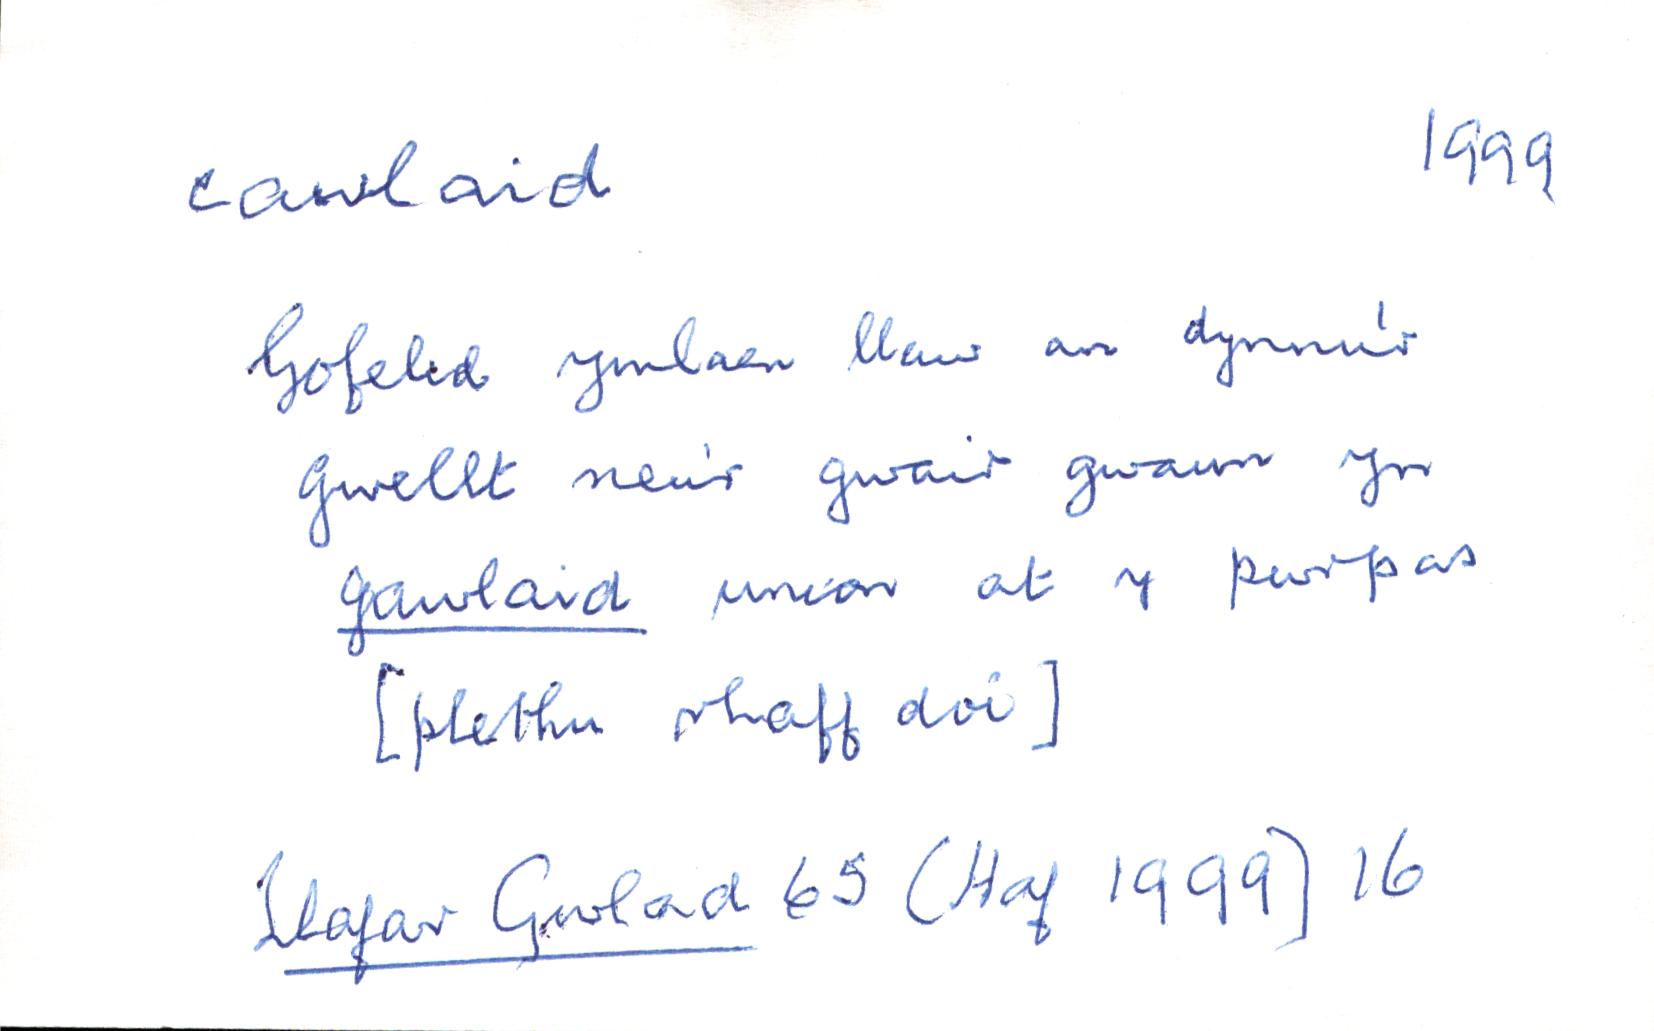 cawlaid 1999
Gofelid ymlaen llaw am dynnu'r
gwellt neu'r gwair gwaun yn
gawlaid union at y pwrpas
[plethu rhaff doi]
Llafar Gwlad 65 (Haf 1999) 16